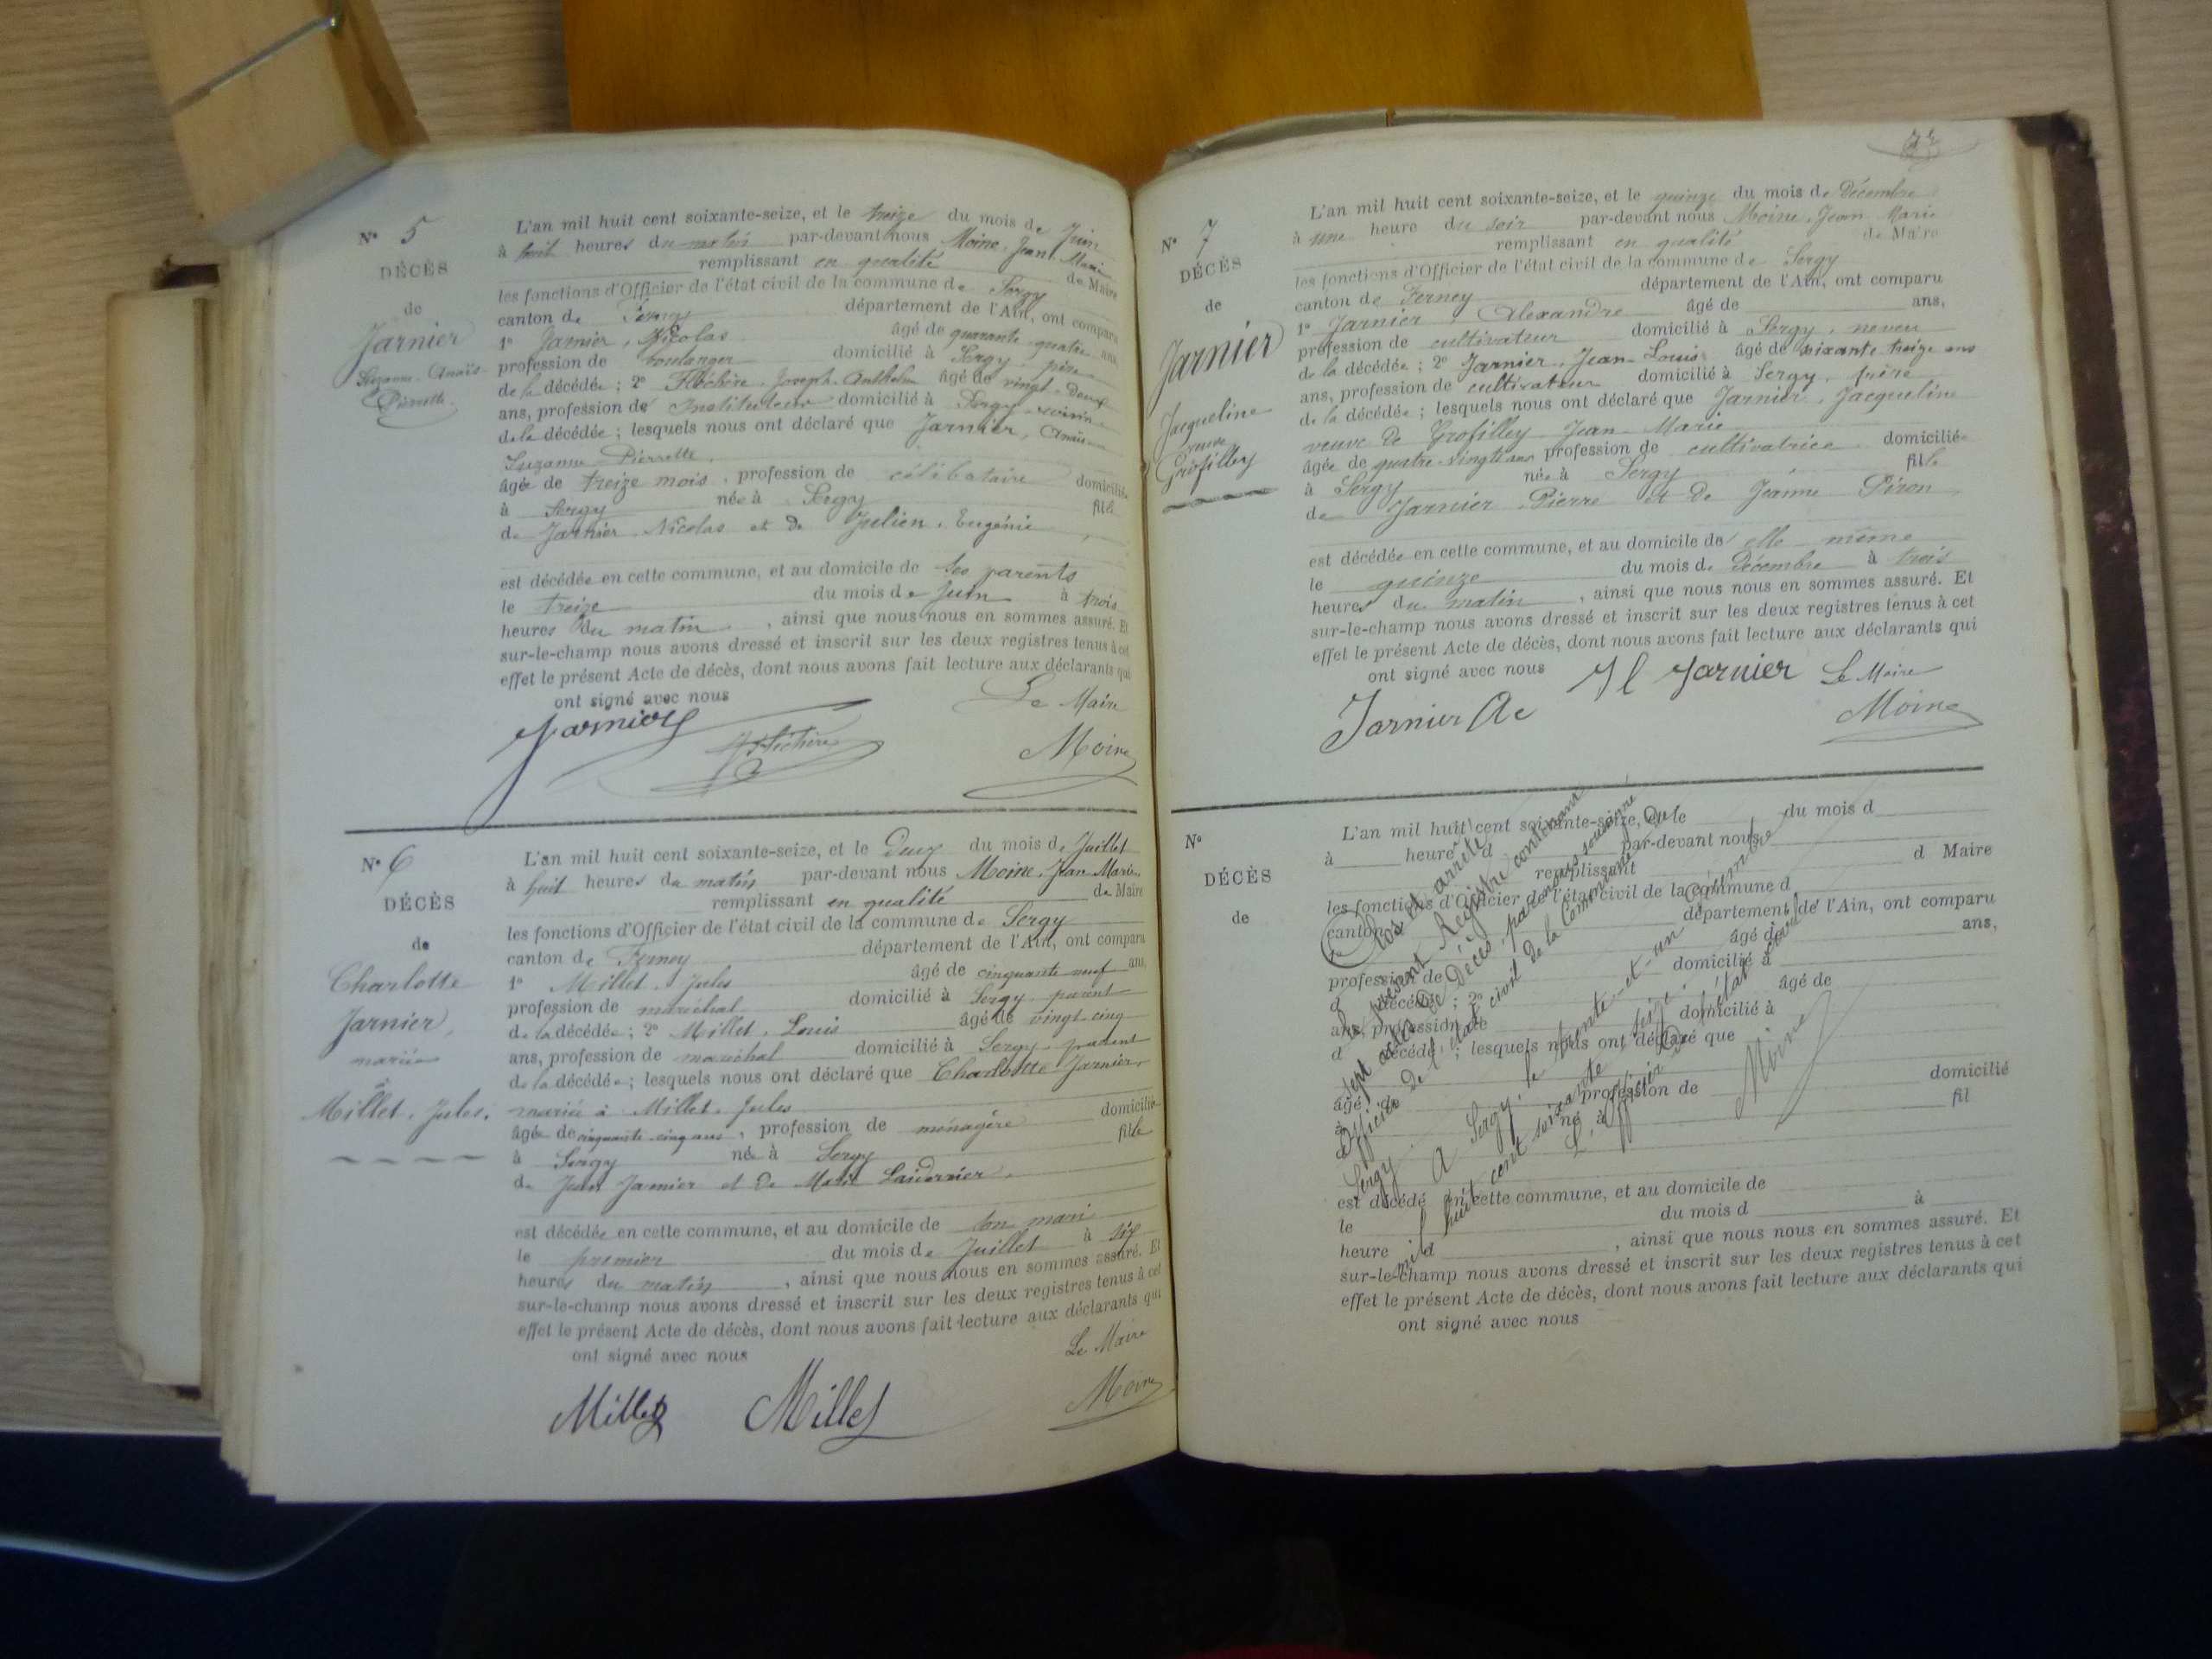 N° 5
DÉCÈS
de
Jarnier
Suzanne Anaïs
Pierrette
L'an mil huit cent soixante-seize, et le treize du mois de Juin
à huit heures du matin par-devant nous Moine, Jean Marie
remplissant en qualité de Maire
les fonctions d'Officier de l'état civil de la commune de Sergy
canton de Ferney département de l'Ain, ont comparu
1° Jarnier, Nicolas âgé de quarante quatre ans
profession de boulanger domicilié à Sergy, père
de la décédée ; 2° Fléchère, Joseph Anthelme âgé de vingt-deux
ans, profession de Instituteur domicilié à Sergy voisin
de la décédée ; lesquels nous ont déclaré que Jarnier, Anaïs
Suzanne Pierrette
âgée de treize mois, profession de célibataire domiciliée
à Sergy née à Sergy fille
de Jarnier Nicolas et de Julien, Eugénie
est décédée en cette commune, et au domicile de ses parents
le treize du mois de Juin à trois
heures du matin, ainsi que nous nous en sommes assuré. Et
sur-le-champ nous avons dressé et inscrit sur les deux registres tenus à cet
effet le présent Acte de décès, dont nous avons fait lecture aux déclarants qui
ont signé avec nous
Le Maire
Jarnier
Fléchère
Moine
N° 6
DÉCÈS
de
Charlotte
Jarnier,
mariée
à
Millet, Jules.
L'an mil huit cent soixante-seize, et le Deux du mois de Juillet
à huit heures du matin par-devant nous Moine, Jean Marie
remplissant en qualité de Maire
les fonctions d'Officier de l'état civil de la commune de Sergy
canton de Ferney département de l'Ain, ont comparu
1° Millet, Jules âgé de cinquante neuf ans,
profession de maréchal domicilié à Sergy parent
de la décédée ; 2° Millet, Louis âgé de vingt cinq
ans, profession de maréchal domicilié à Sergy parent
de la décédée ; lesquels nous ont déclaré que Charlotte Jarnier,
mariée à Millet, Jules
âgée de cinquante cinq ans, profession de ménagère domiciliée
à Sergy née à Sergy fille
de Jean Jarnier et de Marie
est décédée en cette commune, et au domicile de son mari
le premier du mois de Juillet à six
heures du matin, ainsi que nous nous en sommes assuré. Et
sur-le-champ nous avons dressé et inscrit sur les deux registres tenus à cet
effet le présent Acte de décès, dont nous avons fait lecture aux déclarants qui
ont signé avec nous
Le Maire
Millet Millet Moine
N° 7
DÉCÈS
de
Jarnier
Jacqueline
veuve
Grofilley
L'an mil huit cent soixante-seize, et le quinze du mois de Décembre
à une heure du soir par-devant nous Moine, Jean Marie
remplissant en qualité de Maire
les fonctions d'Officier de l'état civil de la commune de Sergy
canton de Ferney département de l'Ain, ont comparu
1° Jarnier, Alexandre âgé de ans,
profession de cultivateur domicilié à Sergy, neveu
de la décédée ; 2° Jarnier, Jean-Louis âgé de soixante treize ans
ans, profession de cultivateur domicilié à Sergy, frère
de la décédée ; lesquels nous ont déclaré que Jarnier, Jacqueline
veuve de Grofilley Jean-Marie
âgée de quatre-vingts ans profession de cultivatrice domiciliée
à Sergy née à Sergy fille
de Jarnier Pierre et de Jeanne Piron
est décédée en cette commune, et au domicile de elle même
le quinze du mois de Décembre à trois
heures du matin, ainsi que nous nous en sommes assuré. Et
sur-le-champ nous avons dressé et inscrit sur les deux registres tenus à cet
effet le présent Acte de décès, dont nous avons fait lecture aux déclarants qui
ont signé avec nous
Jl Jarnier Le Maire
Jarnier Ae Moine
N°
DÉCÈS
de
L'an mil huit cent soixante-seize, et le du mois d
à heure d par-devant nous
remplissant d Maire
les fonctions d'Officier de l'état civil de la commune d
canton département de l'Ain, ont comparu
âgé de ans,
profession de domicilié à
d décédé ; 2° âgé de
ans, profession de domicilié à
d décédé ; lesquels nous ont déclaré que
âgé de profession de domicilié
à né à fil
est décédé en cette commune, et au domicile de
le du mois d à
heure d , ainsi que nous nous en sommes assuré. Et
sur-le-champ nous avons dressé et inscrit sur les deux registres tenus à cet
effet le présent Acte de décès, dont nous avons fait lecture aux déclarants qui
ont signé avec nous
Clos et arrêté
le présent Registre contenant
sept actes de Décès, par nous soussigné
Officier de l'état civil de la Commune de
Sergy A Sergy, le trente-et-un Décembre
mil huit cent soixante seize.
L'Officier de l'état civil
Moine